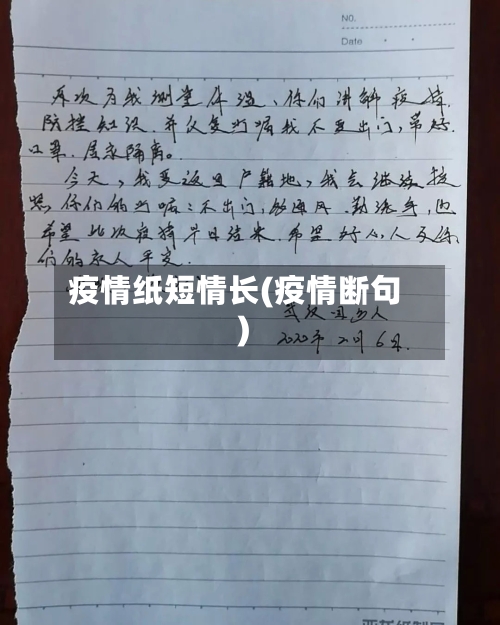 NO.
Date
每次为我测量体温、你们讲解疫情
防控知识,并反复叮嘱我不要出门,带好
口罩,居家隔离。
今天,我要返回户籍地,我会继续按
照你们的叮嘱:不出门,多通风,勤洗手,也
希望此次疫情早日结束。希望好心人及你
们的家人平安。
疫情纸短情长(疫情断句
)
武汉 人
2020年2月6日.